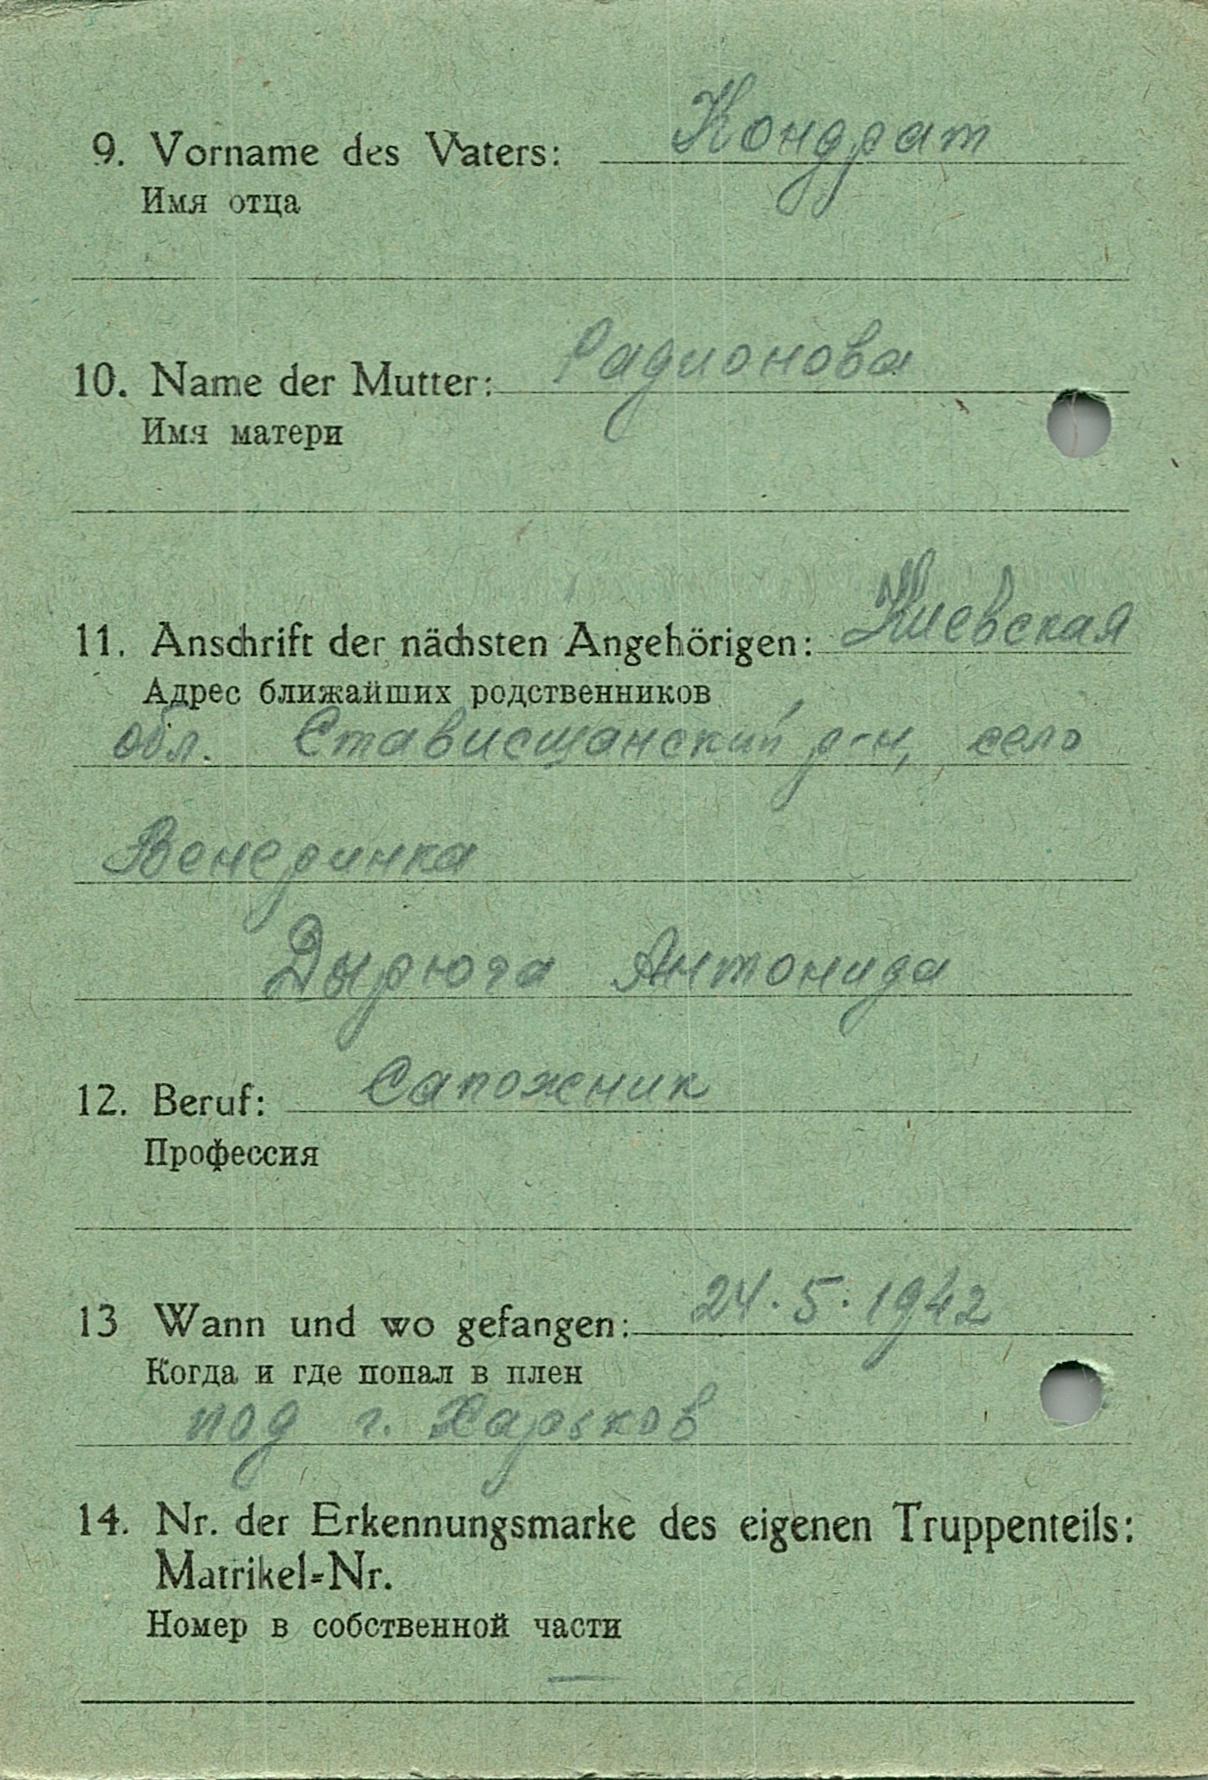 9. Vorname des Vaters: Кондрат
Имя отца
10. Name der Mutter: Радионова
Имя матери
11. Anschrift der nächsten Angehörigen: Киевская
Адрес ближайших родственников
обл. Стависщанский р-н, село
Венеринка
Дырюга Антонида
12. Beruf: Сапожник
Профессия
13 Wann und wo gefangen: 24.5.1942
Когда и где попал в плен
под г. Харьков
14. Nr. der Erkennungsmarke des eigenen Truppenteils:
Matrikel-Nr.
Номер в собственной части
—